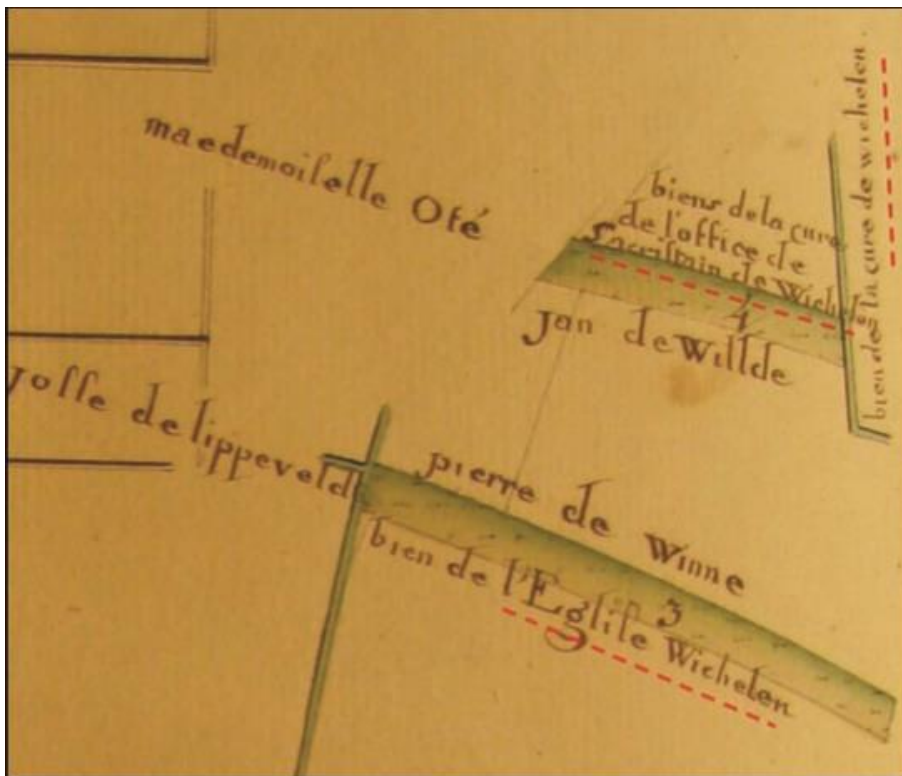 maedemoiselle Oté
biens de la cure
de l'office de
Sacristain de Wichelen
4
Jan de Willde
bien de la cure de wichelen.
Josse de lippeveld
pierre de Winne
3
bien de l'Eglise Wichelen